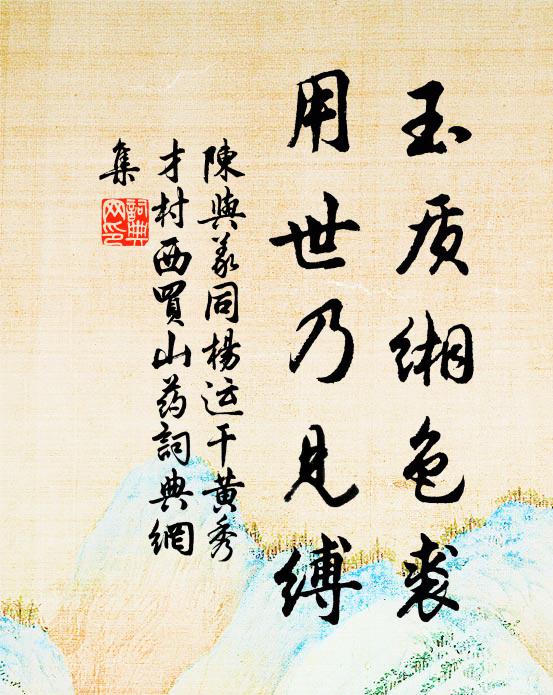 玉质缃色裘
用世乃见缚
陳與義同楊运干黄秀
才村西買山药詞典網
集
詞典网印